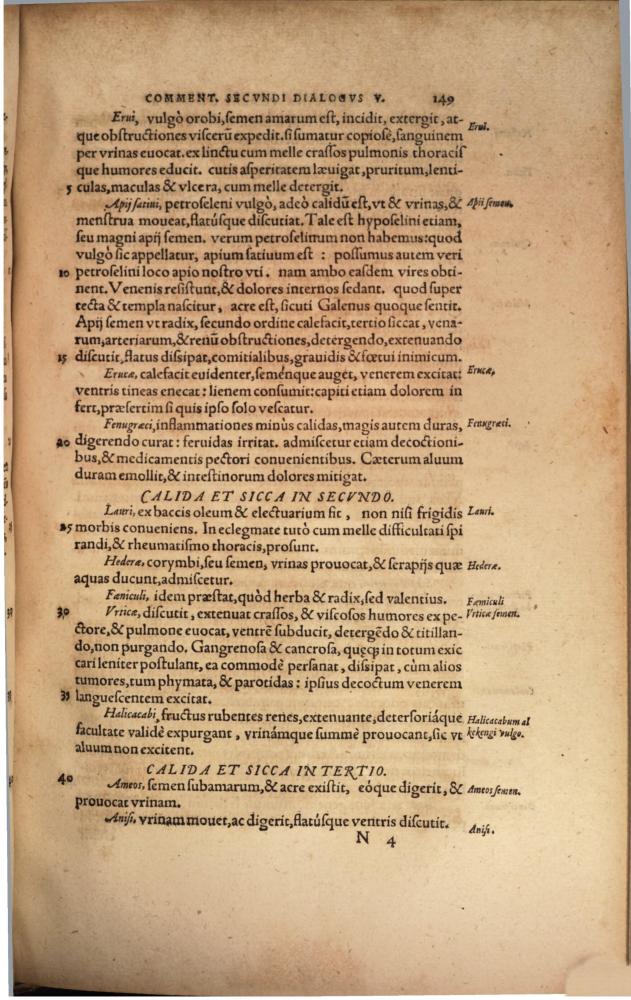 COMMENT. SECVNDI DIALOGVS V. 149
Erui, vulgò orobi, semen amarum est, incidit, extergit, at-
Erui.
que obstructiones viscerũ expedit. si sumatur copiosè, sanguinem
per vrinas euocat. ex linctu cum melle crassos pulmonis thoracis
que humores educit. cutis asperitatem læuigat, pruritum, lenti-
5 culas, maculas & vlcera, cum melle detergit.
Apij satiui, petroseleni vulgò, adeò calidũ est, vt & vrinas, &
Apij semen.
menstrua moueat, flatúsque discutiat. Tale est hyposelini etiam,
seu magni apij semen. verum petroselinum non habemus: quod
vulgò sic appellatur, apium satiuum est : possumus autem veri
10 petroselini loco apio nostro vti. nam ambo easdem vires obti-
nent. Venenis resistunt, & dolores internos sedant. quod super
tecta & templa nascitur, acre est, sicuti Galenus quoque sentit.
Apij semen vt radix, secundo ordine calefacit, tertio siccat, vena-
rum, arteriarum, & renũ obstructiones, detergendo, extenuando
15 discutit, flatus dissipat, comitialibus, grauidis & fœtui inimicum.
Erucæ, calefacit euidenter, seménque auget, venerem excitat:
Erucæ,
ventris tineas enecat: lienem consumit: capiti etiam dolorem in
fert, præsertim si quis ipso solo vescatur.
Fenugræci, inflammationes minùs calidas, magis autem duras,
Fenugræci.
20 digerendo curat: feruidas irritat. admiscetur etiam decoctioni-
bus, & medicamentis pectori conuenientibus. Cæterum aluum
duram emollit, & intestinorum dolores mitigat.
CALIDA ET SICCA IN SECVNDO.
Lauri, ex baccis oleum & electuarium fit, non nisi frigidis
Lauri.
25 morbis conueniens. In eclegmate tutò cum melle difficultati spi
randi, & rheumatismo thoracis, prosunt.
Hederæ, corymbi, seu semen, vrinas prouocat, & serapijs quæ
Hederæ.
aquas ducunt, admiscetur.
Fæniculi, idem præstat, quòd herba & radix, sed valentius.
Fæniculi
30 Vrticæ, discutit, extenuat crassos, & viscosos humores ex pe-
Vrticæ semen.
ctore, & pulmone euocat, ventrẽ subducit, detergẽdo & titillan-
do, non purgando. Gangrenosa & cancrosa, quęcꝙ in totum exic
cari leniter postulant, ea commodè persanat, dissipat, cùm alios
tumores, tum phymata, & parotidas: ipsius decoctum venerem
35 languescentem excitat.
Halicacabi, fructus rubentes renes, extenuante, detersoriáque
Halicacabum al
facultate validè expurgant, vrinámque summè prouocant, sic vt
kekengi vulgo.
aluum non excitent.
CALIDA ET SICCA IN TERTIO.
40 Ameos, semen subamarum, & acre existit, eóque digerit, &
Ameos semen.
prouocat vrinam.
Anisi, vrinam mouet, ac digerit, flatúsque ventris discutit.
Anisi.
N 4